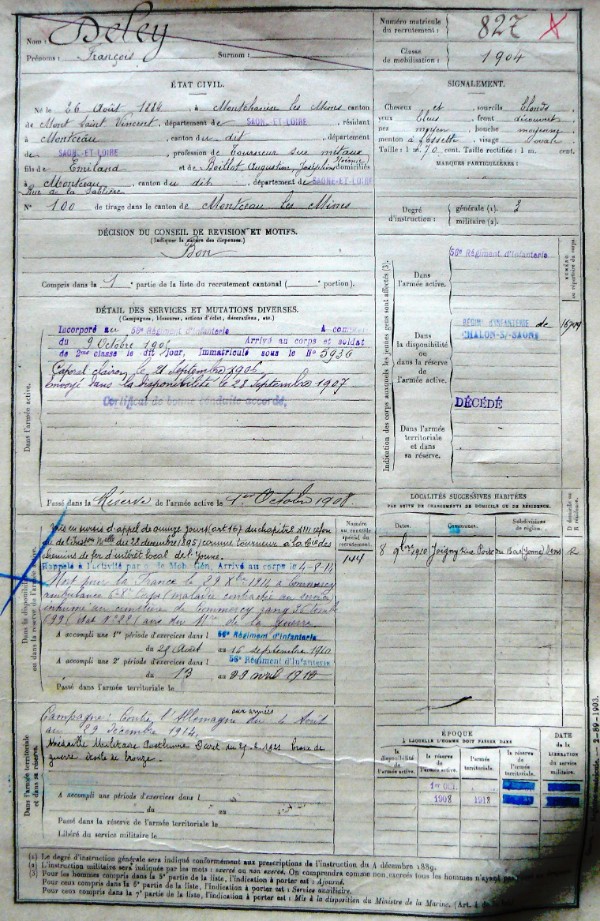 Nom : Deley
Prénoms : François Surnom :
Numéro matricule du recrutement : 827
Classe de mobilisation : 1904
ÉTAT CIVIL.
Né le 26 Août 1884, à Montchanin les Mines canton
de Mont Saint Vincent, département de SAONE-ET-LOIRE, résidant
à Montceau, canton du dit, département
de SAONE-ET-LOIRE, profession de tourneur sur métaux
fils de Emiland et de Boillot Augustine Joséphine domiciliés
à Montceau, canton du dit, département de SAONE-ET-LOIRE
Rue de la Sablière
N° 100 de tirage dans le canton de Montceau les Mines
SIGNALEMENT.
Cheveux et sourcils blonds
yeux bleus, front découvert
nez moyen, bouche moyenne
menton à fossette, visage ovale
Taille : 1 m. 70 cent. Taille rectifiée : 1 m. cent.
MARQUES PARTICULIÈRES :
Degré d'instruction : générale (1). 3
militaire (2).
DÉCISION DU CONSEIL DE REVISION ET MOTIFS.
(Indiquer la nature des dispenses.)
Bon
Compris dans la 1e partie de la liste du recrutement cantonal ( portion).
DÉTAIL DES SERVICES ET MUTATIONS DIVERSES.
(Campagnes, blessures, actions d'éclat, décorations, etc.)
Dans l'armée active.
Incorporé au 56e Régiment d'Infanterie A compter
du 9 Octobre 1905 Arrivé au corps et soldat
de 2me classe le dit jour, immatriculé sous le N° 5936
Caporal clairon le 21 Septembre 1906
Envoyé dans la disponibilité le 28 Septembre 1907
Certificat de bonne conduite accordé,
Passé dans la Réserve de l'armée active le 1er Octobre 1908
Indication des corps auxquels les jeunes gens sont affectés (3).
Dans l'armée active.
56e Régiment d'Infanterie
Dans la disponibilité ou dans la réserve de l'armée active.
RÉGIM. D'INFANTERIE de
CHALON-S/-SAONE
DÉCÉDÉ
Dans l'armée territoriale et dans sa réserve.
NUMÉRO au répertoire du corps.
Dans la disponibilité ou dans la réserve de l'armée active.
chemins de fer d'intérêt local de l'Yonne.
Rappelé à l'activité par Mobilisation, Arrivé au corps le 4-8-14
Mort pour la France le 29 Xbre 1914 à Commercy
inhumé au cimetière de Commercy
A accompli une 1re période d'exercices dans l 56e Régiment d'Infanterie
du 29 Août au 16 septembre 1910
A accompli une 2e période d'exercices dans l 56e Régiment d'Infanterie
du 13 au 29 avril 1912
Passé dans l'armée territoriale le
Numéro au contrôle spécial du recrutement.
LOCALITÉS SUCCESSIVES HABITÉES
PAR SUITE DE CHANGEMENTS DE DOMICILE OU DE RÉSIDENCE.
Dates. Communes. Subdivisions de région. D domicile ou R résidence.
8 9bre 1910 Joigny R
Dans l'armée territoriale et dans sa réserve.
Campagne : Contre l'Allemagne aux armées du 4 Août
au 29 Décembre 1914.
Médaille Militaire Posthume Croix de
guerre étoile de bronze.
A accompli une période d'exercices dans l
du au
Passé dans la réserve de l'armée territoriale le
Libéré du service militaire le
ÉPOQUE
À LAQUELLE L'HOMME DOIT PASSER DANS
la disponibilité de l'armée active. la réserve de l'armée active. l'armée territoriale. la réserve de l'armée territoriale.
DATE de la LIBÉRATION du service militaire.
1er OCT.
1908 1918
(1) Le degré d'instruction générale sera indiqué conformément aux prescriptions de l'instruction du 4 décembre 1889.
(2) L'instruction militaire sera indiquée par les mots : exercé ou non exercé. On comprendra comme non exercés tous les hommes n'ayant
(3) Pour les hommes compris dans la 5e partie de la liste, l'indication à porter est : Ajourné.
Pour ceux compris dans la 6e partie de la liste, l'indication à porter est : Service auxiliaire.
Pour ceux compris dans la 7e partie de la liste, l'indication à porter est : Mis à la disposition du Ministre de la Marine.